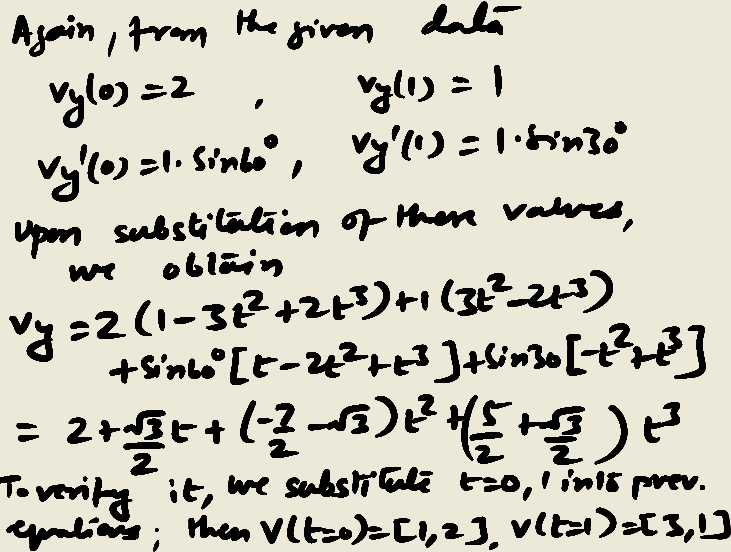 Again, from the given data
vy(0) = 2 , vy(1) = 1
vy'(0) = 1. Sin60°, vy'(1) = 1. Sin30°
Upon substitution of these values,
we obtain
vy = 2 (1-3t²+2t³)+1(3t²-2t³)
+Sin60°[t-2t²+t³]+Sin30[-t²+t³]
= 2+√3/2 t + (-7/2 -√3) t² +(5/2 +√3/2) t³
To verify it, we substitute t=0,1 into prev.
equations; then V(t=0)=[1,2], V(t=1)=[3,1]